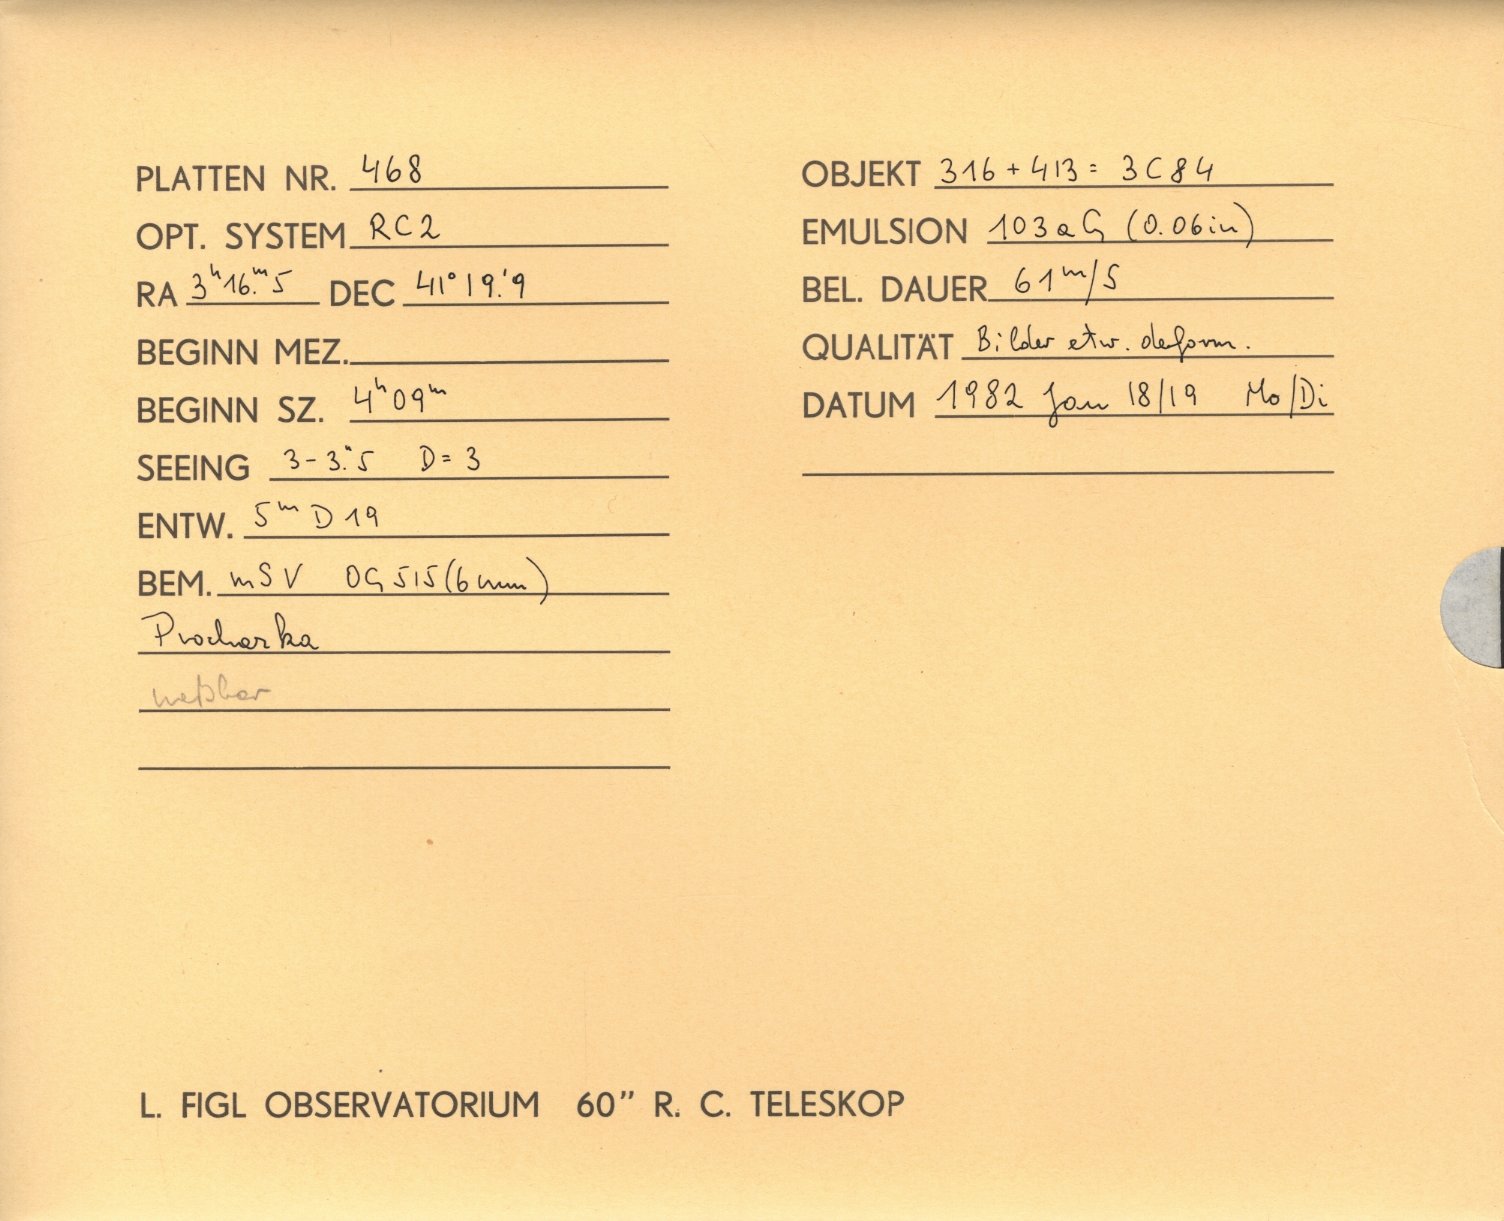 PLATTEN NR. 468
OPT. SYSTEM RC2
RA 3ʰ16.ᵐ5 DEC 41°19.'9
BEGINN MEZ.
BEGINN SZ. 4ʰ09ᵐ
SEEING 3-3."5 D=3
ENTW. 5ᵐ D19
BEM. mSV OG515(6mm)
Prochazka
meßbar
OBJEKT 316+413= 3C84
EMULSION 103aG (0.06in)
BEL. DAUER 61ᵐ/S
QUALITÄT Bilder etw. deform.
DATUM 1982 Jan 18/19 Mo/Di
L. FIGL OBSERVATORIUM 60" R. C. TELESKOP